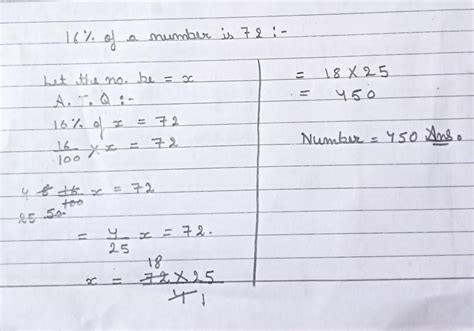 16% of a number is 72 :-
Let the no. be = x
A. T. Q :-
16% of x = 72
16/100 × x = 72
4 8 16/100 x = 72
25 50
= 4/25 x = 72.
18
x = 72 × 25/4 1
= 18 × 25
= 450
Number = 450 Ans.